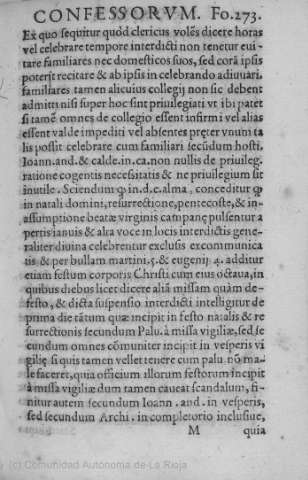 CONFESSORVM. Fo.273.
Ex quo sequitur quòd clericus volẽs dicere horas
vel celebrare tempore interdicti non tenetur eui-
tare familiares nec domesticos suos, sed corã ipsis
poterit recitare & ab ipsis in celebrando adiuuari.
familiares tamen alicuius collegij non sic debent
admitti nisi super hoc sint priuilegiati vt ibi patet
si tamẽ omnes de collegio essent infirmi vel alias
essent valde impediti vel absentes pręter vnum ta
lis possit celebrare cum familiari secũdum hosti,
Ioann.and.& calde.in.ca.non nullis de priuileg.
ratione cogentis necessitatis & ne priuilegium sit
inutile. Sciendum ꝙ in.d.c.alma, conceditur ꝙ
in natali domini, resurrectione, pentecoste, & in
assumptione beatæ virginis campanę pulsentur a
pertis ianuis & alta voce in locis interdictis gene-
raliter diuina celebrentur exclusis excommunica
tis & per bullam martini.5.& eugenij.4. additur
etiam festum corporis Christi cum eius octaua, in
quibus diebus licet dicere aliã missam quàm de-
festo, & dicta suspensio interdicti intelligitur de
prima die tãtum quæ incipit in festo natalis & re
surrectionis secundum Palu. à missa vigiliæ, sed se
cundum omnes cõmuniter incipit in vesperis vi
gilię si quis tamen vellet tenere cum palu nõ ma-
le faceret, quia officium illorum festorum incipit
à missa vigiliæ dum tamen caueat scandalum, fi-
nitur autem secundum Ioann. and. in vesperis,
sed secundum Archi. in completorio inclusiue,
M quia
(c) Comunidad Autonoma de La Rioja